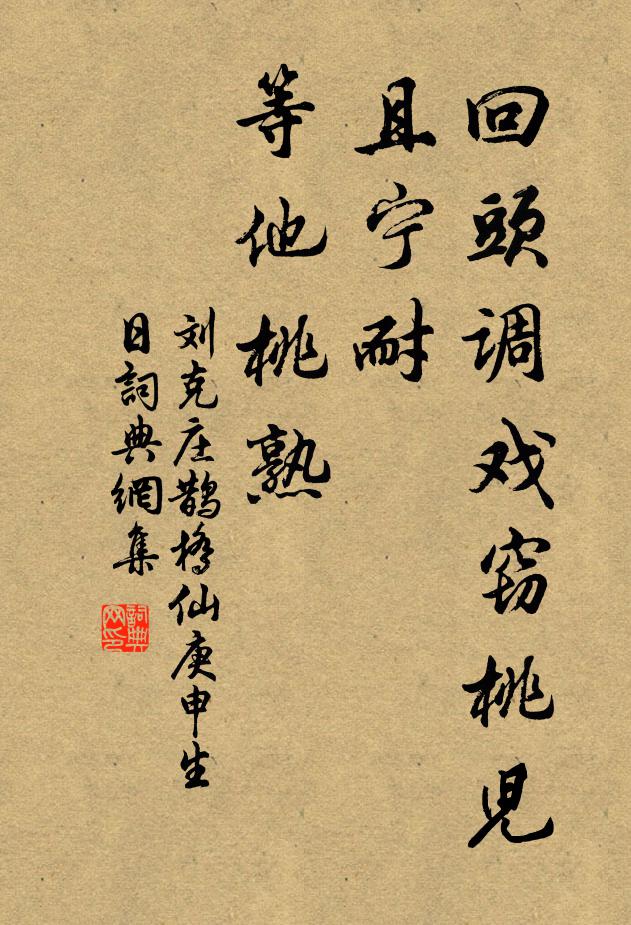 回頭调戏窃桃児
且宁耐
等他桃熟
刘克庄鹊橋仙庚申生
日詞典網集
詞典
网印